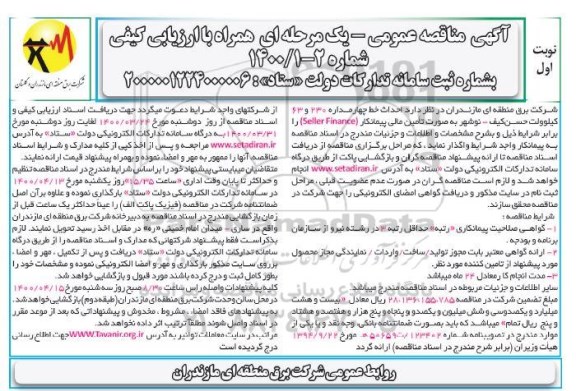 نوبت
اول
آگهی مناقصه عمومی – یک مرحله ای همراه با ارزیابی کیفی
شماره ۲-۱۴۰۰/۱
بشماره ثبت سامانه تدارکات دولت «ستاد»: ۲۰۰۰۰۰۱۲۲۴۰۰۰۰۰۶
شرکت برق منطقه ای مازندران و گلستان
شرکت برق منطقه ای مازندران در نظر دارد احداث خط چهارمداره ۲۳۰ و ۶۳
کیلوولت حسن‌کیف - نوشهر به صورت تأمین مالی پیمانکار (Seller Finance) را
برابر شرایط ذیل و بشرح مشخصات و اطلاعات و جزئیات مندرج در اسناد مناقصه
به پیمانکار واجد شرایط واگذار نماید. که مراحل برگزاری مناقصه از دریافت
اسناد مناقصه تا ارائه پیشنهاد مناقصه گران و بازگشایی پاکت از طریق درگاه
سامانه تدارکات الکترونیکی دولت «ستاد» به آدرس www.setadiran.ir انجام
خواهد شد و لازم است مناقصه گران در صورت عدم عضویت قبلی، مراحل
ثبت نام در سایت مذکور و دریافت گواهی امضای الکترونیکی را جهت شرکت در
مناقصه محقق سازند.
شرایط مناقصه :
۱- گواهی صلاحیت پیمانکاری «رتبه» حداقل رتبه ۲ در رشته نیرو از سازمان
برنامه و بودجه .
۲- ارائه گواهی معتبر بابت مجوز تولید/ساخت/ واردات / نمایندگی مجاز محصول
مورد پیشنهاد از تامین کننده مورد نظر.
۳- مدت انجام کار معادل ۲۴ ماه میباشد
سایر اطلاعات و جزئیات مربوطه در اسناد مناقصه مندرج میباشد
مبلغ تضمین شرکت در مناقصه ۲۸،۱۳۶،۱۵۵،۷۸۵ ریال معادل « بیست و هشت
میلیارد و یکصدوسی و شش میلیون و یکصدو و پنجاه و پنج هزار و هفتصدو هشتاد
و پنج ریال تمام» میباشد که باید بصورت ضمانتنامه بانکی، وجه نقد و یا یکی از
موارد مندرج در تصویبنامه شماره مورخ ۱۳۹۴/۹/۲۲
هیأت وزیران (برابر شرح مندرج در اسناد مناقصه) ارائه گردد
از شرکتهای واجد شرایط دعوت میگردد جهت دریافت اسناد ارزیابی کیفی و
اسناد مناقصه از روز دوشنبه مورخ ۱۴۰۰/۰۳/۲۴ لغایت روز دوشنبه مورخ
۱۴۰۰/۰۳/۳۱ به درگاه سامانه تدارکات الکترونیکی دولت «ستاد» به آدرس
www.setadiran.ir مراجعه و پس از اخذ کپی از کلیه مدارک و شرایط اسناد
مناقصه آنها را ممهور به مهر و امضا، نموده و بهمراه پیشنهاد قیمت ارائه نمایند.
متقاضیان میبایستی پیشنهاد خود را بر اساس شرایط مندرج در اسناد مناقصه تنظیم
و حداکثر تا پایان وقت اداری (ساعت ۱۵/۳۵) روز یکشنبه مورخ ۱۴۰۰/۰۴/۱۳
در سامانه تدارکات الکترونیکی دولت «ستاد» بارگذاری نموده و علاوه بر آن اصل
ضمانتنامه شرکت در مناقصه (فیزیک پاکت الف) را عینا حداکثر یک ساعت قبل از
زمان بازگشایی مندرج در اسناد مناقصه به دبیرخانه شرکت برق منطقه ای مازندران
واقع در ساری – میدان امام خمینی «ره» در مقابل اخذ رسید تحویل نمایند. لازم
بذکر است فقط پیشنهاد شرکتهائی که مدارک و اسناد مناقصه را از طریق درگاه
سامانه تدارکات الکترونیکی دولت «ستاد» دریافت و پس از تکمیل، مهر و امضا
بر روی سایت مذکور بارگذاری و مهر و امضا الکترونیکی نموده و مشخصات خود را
بطور کامل ثبت و درج کرده باشند مورد قبول و بازگشایی خواهد شد.
کلیه پیشنهادات واصله راس ساعت ۸/۳۰ صبح روز سه شنبه مورخ ۱۴۰۰/۰۴/۱۵
در محل سالن وحدت شرکت برق منطقه ای مازندران (طبقه دوم) بازگشایی خواهد شد.
به پیشنهادهای فاقد امضاء ، مشروط ، مخدوش و پیشنهاداتی که بعد از موعد مقرر
در اسناد واصل شوند مطلقا ترتیب اثر داده نخواهد شد.
مراتب در سایت معاملات توانیر به آدرس www.Tavanir.org.ir جهت اطلاع رسانی
درج گردیده است
روابط عمومی شرکت برق منطقه ای مازندران